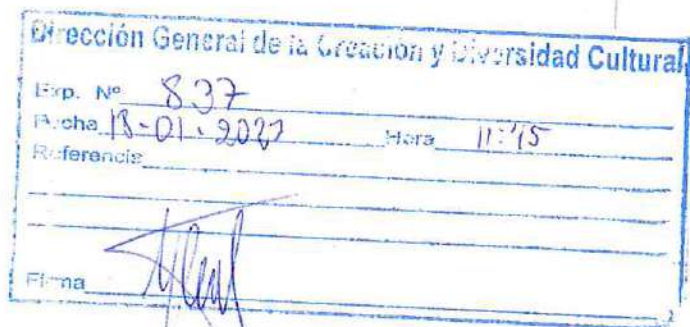 Dirección General de la Creación y Diversidad Cultural
Exp. Nº 837
Fecha Hora 11:45
Referencia
Firma